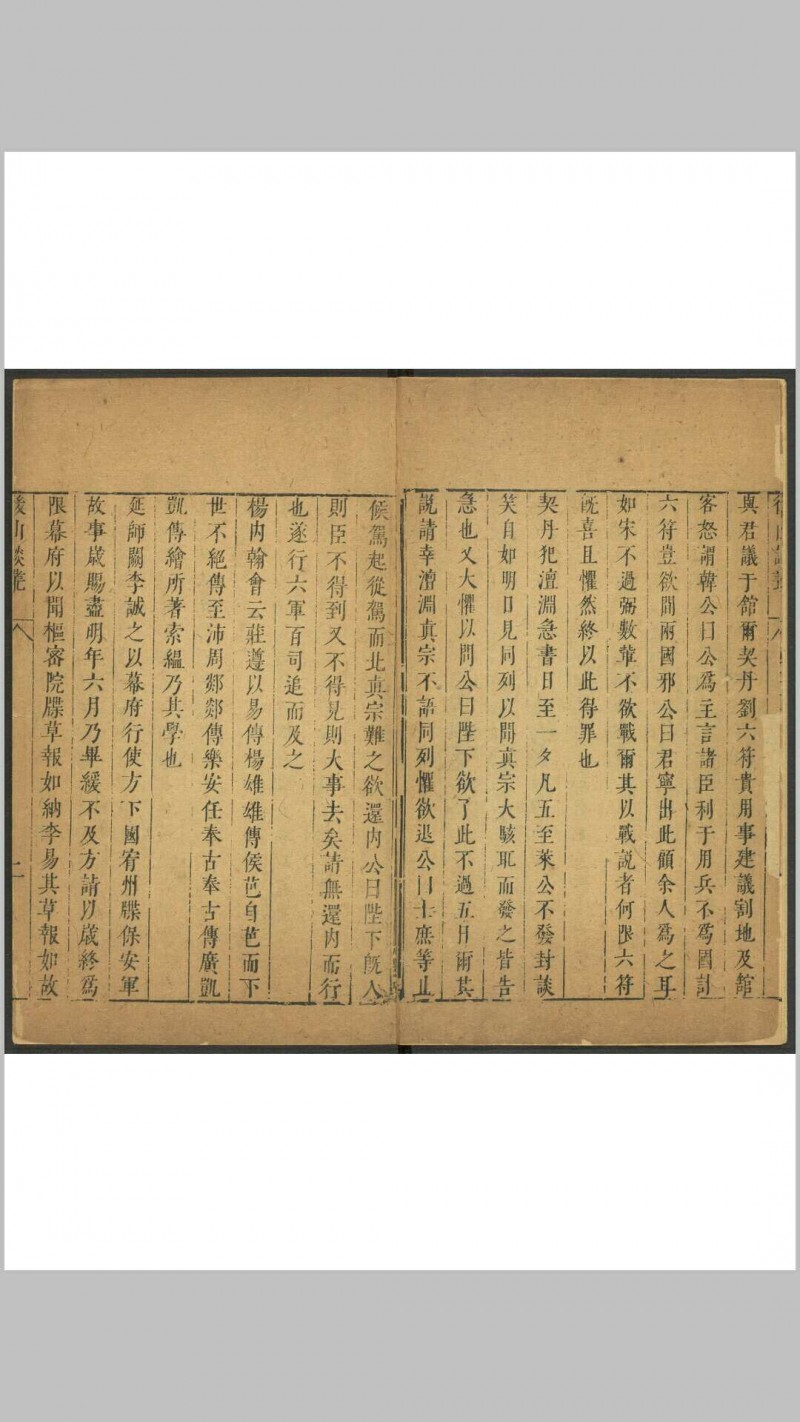 與君議于館爾契丹劉六符貴用事建議割地及館
客怒謂韓公曰公為主言諸臣利于用兵不為國計
六符豈欲間兩國邪公曰君寧出此顧余人為之耳
如宋不過弼數輩不欲戰爾其以戰說者何限六符
旣喜且懼然終以此得罪也
契丹犯澶淵急書日至一夕凡五至萊公不發封談
笑自如明日見同列以聞真宗大駭取而發之皆告
急也又大懼以問公曰陛下欲了此不過五日爾其
說請幸澶淵真宗不語同列懼欲退公曰士庶等止
候駕起從駕而北真宗難之欲還內公曰陛下旣入
則臣不得到又不得見則大事去矣請無還內而行
也遂行六軍百司追而及之
楊內翰會云莊遵以易傳楊雄雄傳侯芭自芭而下
世不絕傳至沛周郯郯傳樂安任奉古奉古傳廣凱
凱傳繪所著索緼乃其學也
延師闕李誠之以幕府行使方下國宥州牒保安軍
故事歲賜盡明年六月乃畢緩不及方請以歲終為
限幕府以聞樞密院牒草報如納李易其草報如故
後山談叢 二